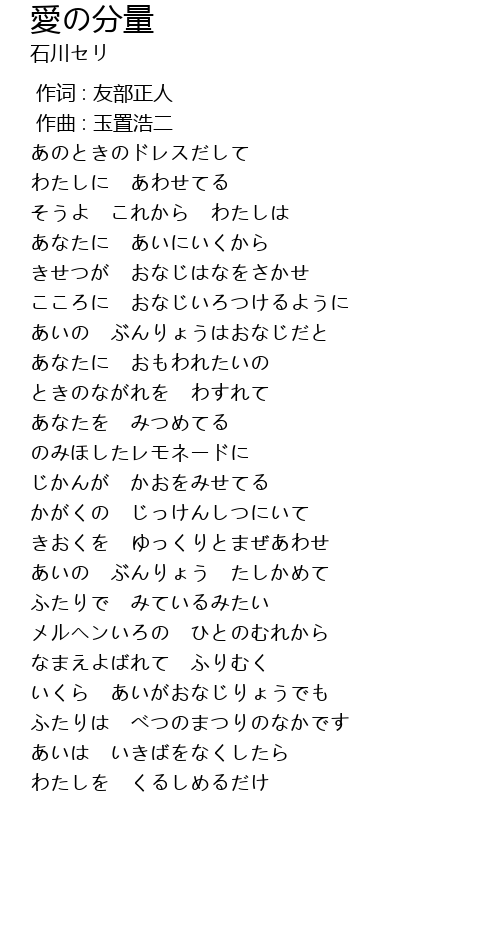 愛の分量
石川セリ
作词 : 友部正人
作曲 : 玉置浩二
あのときのドレスだして
わたしに　あわせてる
そうよ　これから　わたしは
あなたに　あいにいくから
きせつが　おなじはなをさかせ
こころに　おなじいろつけるように
あいの　ぶんりょうはおなじだと
あなたに　おもわれたいの
ときのながれを　わすれて
あなたを　みつめてる
のみほしたレモネードに
じかんが　かおをみせてる
かがくの　じっけんしつにいて
きおくを　ゆっくりとまぜあわせ
あいの　ぶんりょう　たしかめて
ふたりで　みているみたい
メルヘンいろの　ひとのむれから
なまえよばれて　ふりむく
いくら　あいがおなじりょうでも
ふたりは　べつのまつりのなかです
あいは　いきばをなくしたら
わたしを　くるしめるだけ